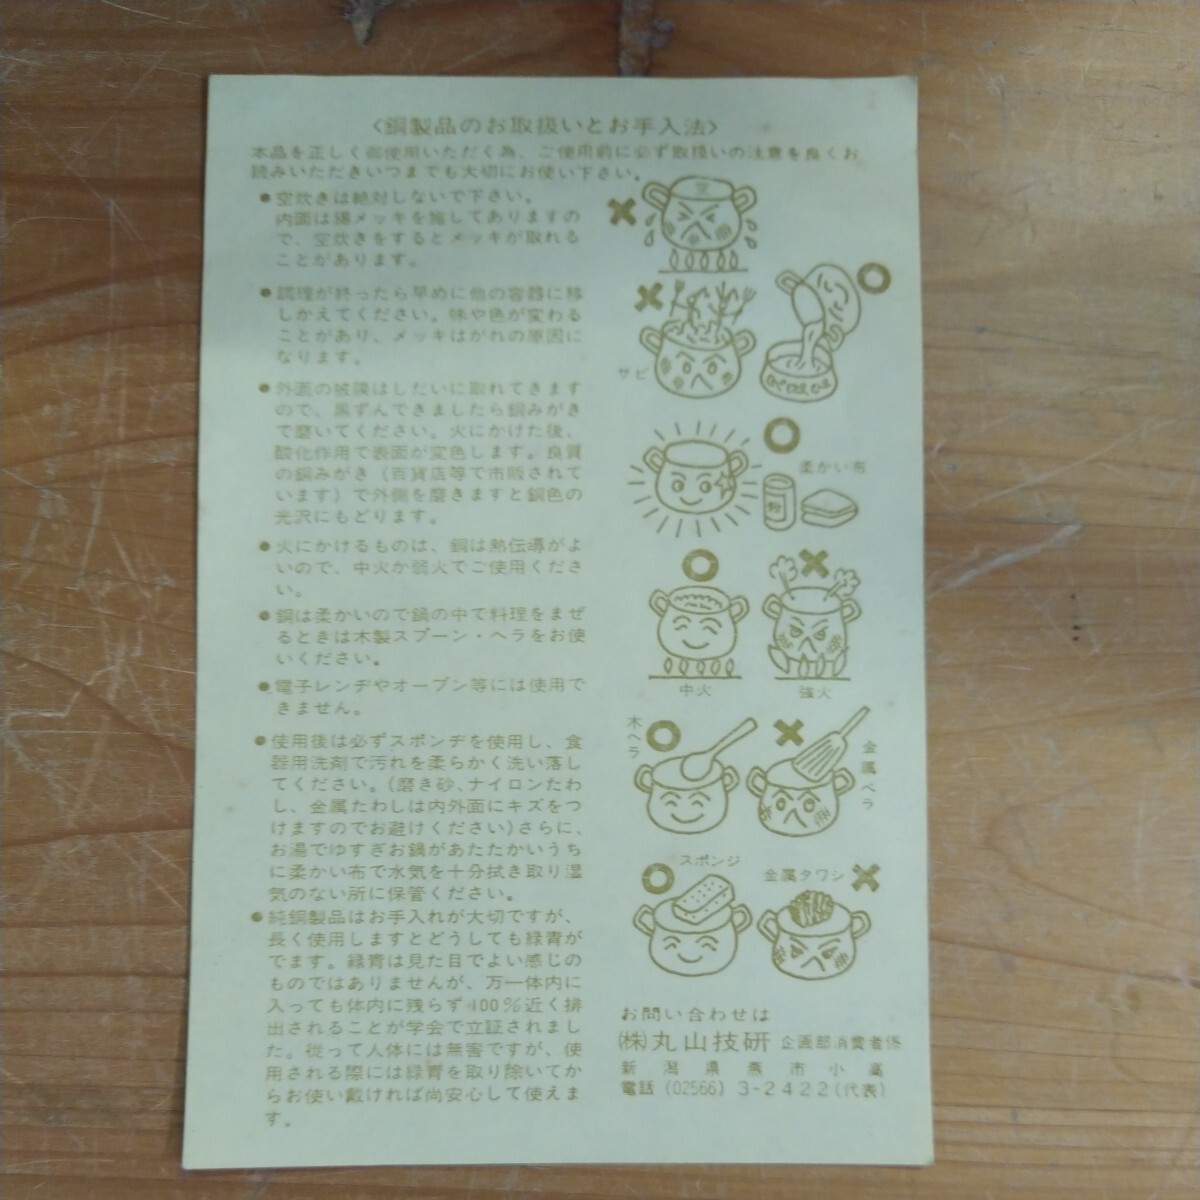 〈銅製品のお取扱いとお手入法〉
本品を正しく御使用いただく為、ご使用前に必ず取扱いの注意を良くお
読みいただきいつまでも大切にお使い下さい。
●空炊きは絶対しないで下さい。
内面は錫メッキを施してありますの
で、空炊きをするとメッキが取れる
ことがあります。
●調理が終ったら早めに他の容器に移
しかえてください。味や色が変わる
ことがあり、メッキはがれの原因に
なります。
●外面の被膜はしだいに取れてきます
ので、黒ずんできましたら銅みがき
で磨いてください。火にかけた後、
酸化作用で表面が変色します。良質
の銅みがき（百貨店等で市販されて
います）で外側を磨きますと銅色の
光沢にもどります。
●火にかけるものは、銅は熱伝導がよ
いので、中火か弱火でご使用くださ
い。
●銅は柔かいので鍋の中で料理をまぜ
るときは木製スプーン・ヘラをお使
いください。
●電子レンヂやオーブン等には使用で
きません。
●使用後は必ずスポンヂを使用し、食
器用洗剤で汚れを柔らかく洗い落し
てください。(磨き砂、ナイロンたわ
し、金属たわしは内外面にキズをつ
けますのでお避けください)さらに、
お湯でゆすぎお鍋があたたかいうち
に柔かい布で水気を十分拭き取り湿
気のない所に保管ください。
●純銅製品はお手入れが大切ですが、
長く使用しますとどうしても緑青が
でます。緑青は見た目でよい感じの
ものではありませんが、万一体内に
入っても体内に残らず100％近く排
出されることが学会で立証されまし
た。従って人体には無害ですが、使
用される際には緑青を取り除いてか
らお使い戴ければ尚安心して使えま
す。
空
サビ
柔かい布
粉
中火
強火
木ヘラ
金属ベラ
スポンジ
金属タワシ
お問い合わせは
㈱丸山技研 企画部消費者係
新潟県燕市小高
電話（02566）3-2422(代表)